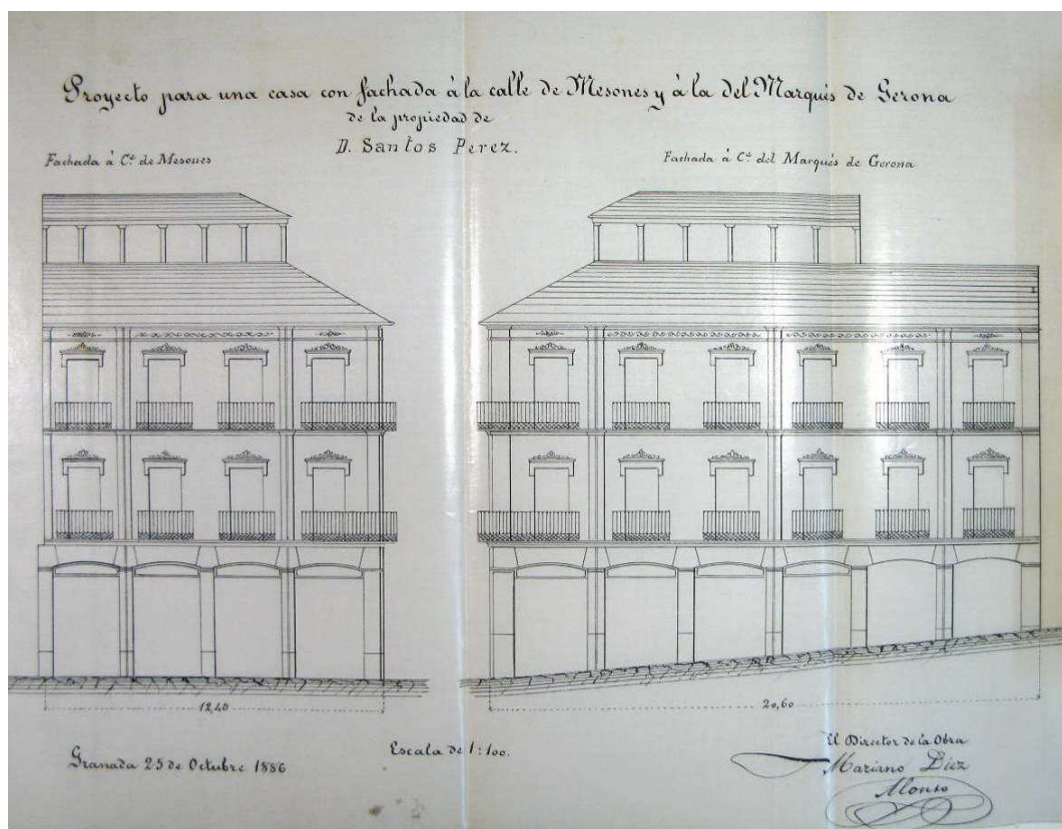 Proyecto para una casa con fachada à la calle de Mesones y à la del Marqués de Gerona
de la propiedad de
D. Santos Perez.
Fachada à C.ª de Mesones
Fachada à C.ª del Marqués de Gerona
12,40
20,60
Escala de 1:100.
Granada 25 de Octubre 1886
El Director de la Obra
Mariano Diez
Alonso